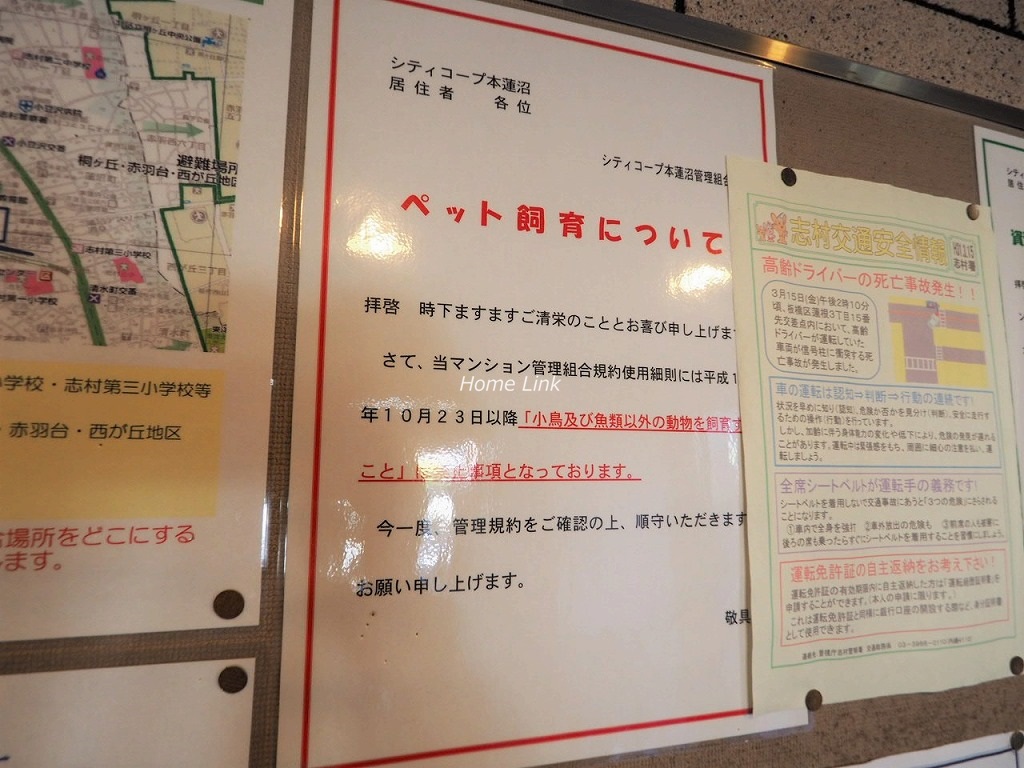 桐ヶ丘・赤羽台・西が丘地区
避難場所
小豆沢病院
志村第三小学校
清水町交番
小学校・志村第三小学校等
・赤羽台・西が丘地区
場所をどこにする
ます。
シティコープ本蓮沼
居住者　各位
シティコープ本蓮沼管理組合
ペット飼育について
拝啓　時下ますますご清栄のこととお喜び申し上げま
さて、当マンション管理組合規約使用細則には平成1
年10月23日以降「小鳥及び魚類以外の動物を飼育す
こと」は禁止事項となっております。
今一度、管理規約をご確認の上、順守いただきます
お願い申し上げます。
敬具
Home Link
志村交通安全情報
H31.3.15
志村署
高齢ドライバーの死亡事故発生！！
3月15日(金)午後2時10分
頃、板橋区蓮根3丁目15番
先交差点内において、高齢
ドライバーが運転していた
車両が信号柱に衝突する死
亡事故が発生しました。
車の運転は認知⇒判断⇒行動の連続です!
状況を早めに知り(認知)、危険か否かを見分け(判断)、安全に走行す
るための操作(行動)を行っています。
しかし、加齢に伴う身体能力の変化や低下により、危険の発見が遅れる
ことがあります。運転中は緊張感をもち、周囲に細心の注意を払い、運
転しましょう。
全席シートベルトが運転手の義務です!
シートベルトを着用しないで交通事故にあうと「3つの危険」にさらされる
ことになります。
①車内で全身を強打　②車外放出の危険も　③前席の人も被害に
後ろの席も乗ったらすぐにシートベルトを着用することを習慣にしましょう。
運転免許証の自主返納をお考え下さい!
運転免許証の有効期間内に自主返納した方は「運転経歴証明書」を
申請することができます。(本人の申請に限ります。)
これは運転免許証と同様に銀行口座の開設する際など、身分証明書
として使用できます。